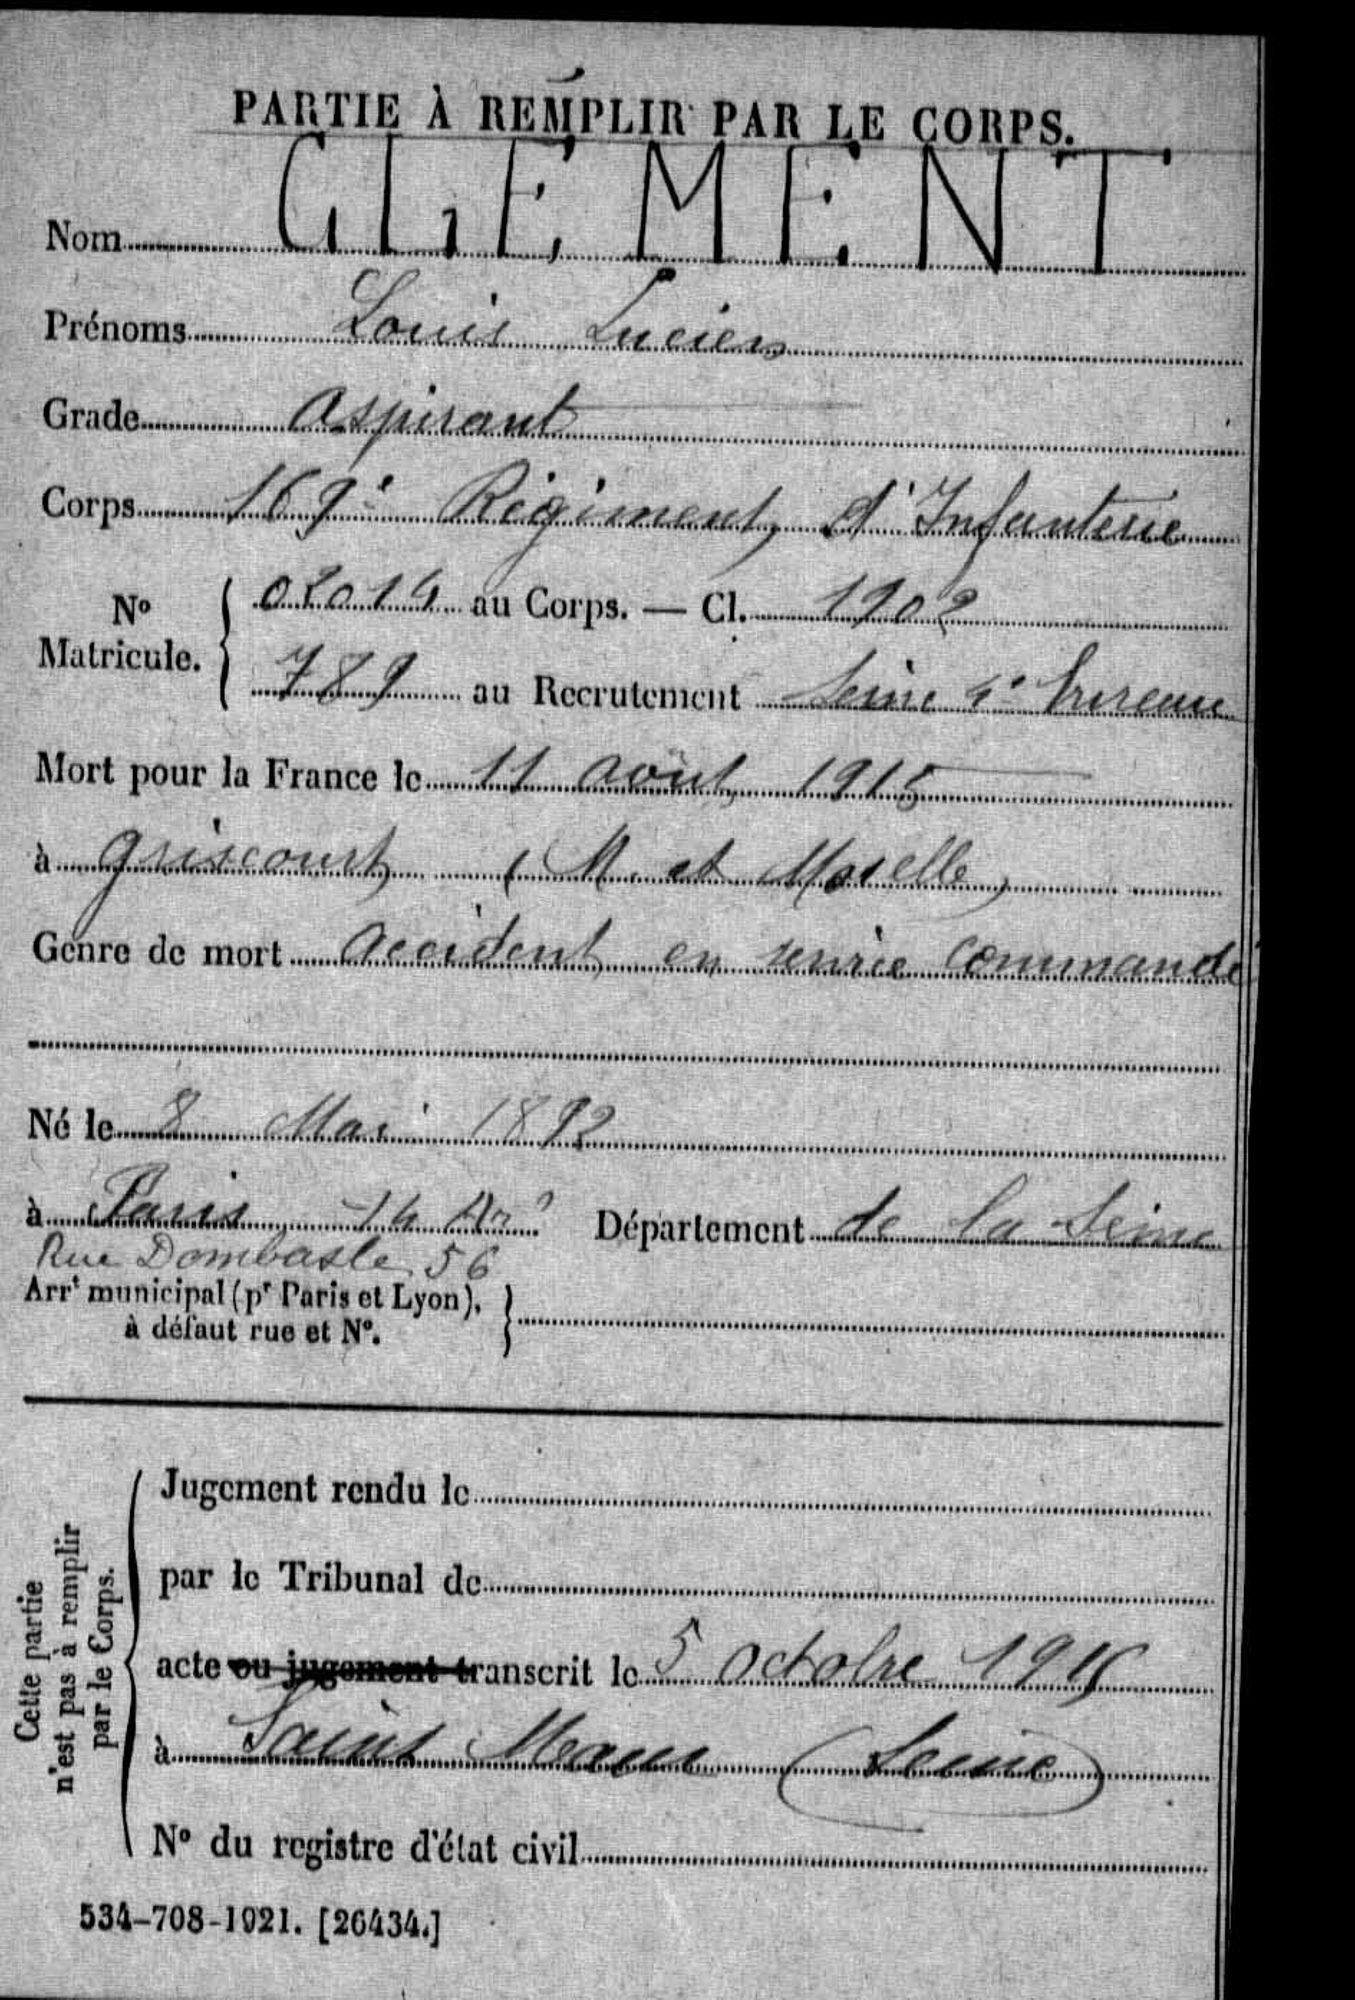 PARTIE À REMPLIR PAR LE CORPS.
Nom CLEMENT
Prénoms Louis Lucien
Grade Aspirant
Corps 169e Régiment d'Infanterie
No Matricule. { 02014 au Corps. — Cl. 1902
789 au Recrutement Seine 4e bureau
Mort pour la France le 11 août 1915
à Griscourt (M. et Moselle)
Genre de mort accident en service commandé
Né le 8 Mai 1892
à Paris 14 Ar Département de la Seine
Rue Dombasle 56
Arrt municipal (pr Paris et Lyon), à défaut rue et No. }
Cette partie n'est pas à remplir par le Corps.
Jugement rendu le
par le Tribunal de
acte ou jugement transcrit le 5 octobre 1915
à Saint Maur (Seine)
No du registre d'état civil
534-708-1921. [26434.]